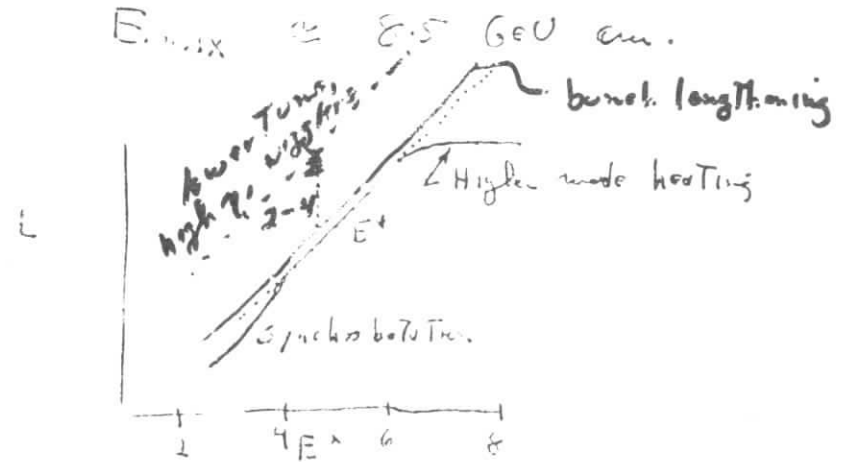 Emax ≅ 8.5 GeV cm.
lower Tune,
high η'
2-4
bunch lengthening
Higher mode heating
L
E⁺
Synchrobetatron
2 4 E* 6 8